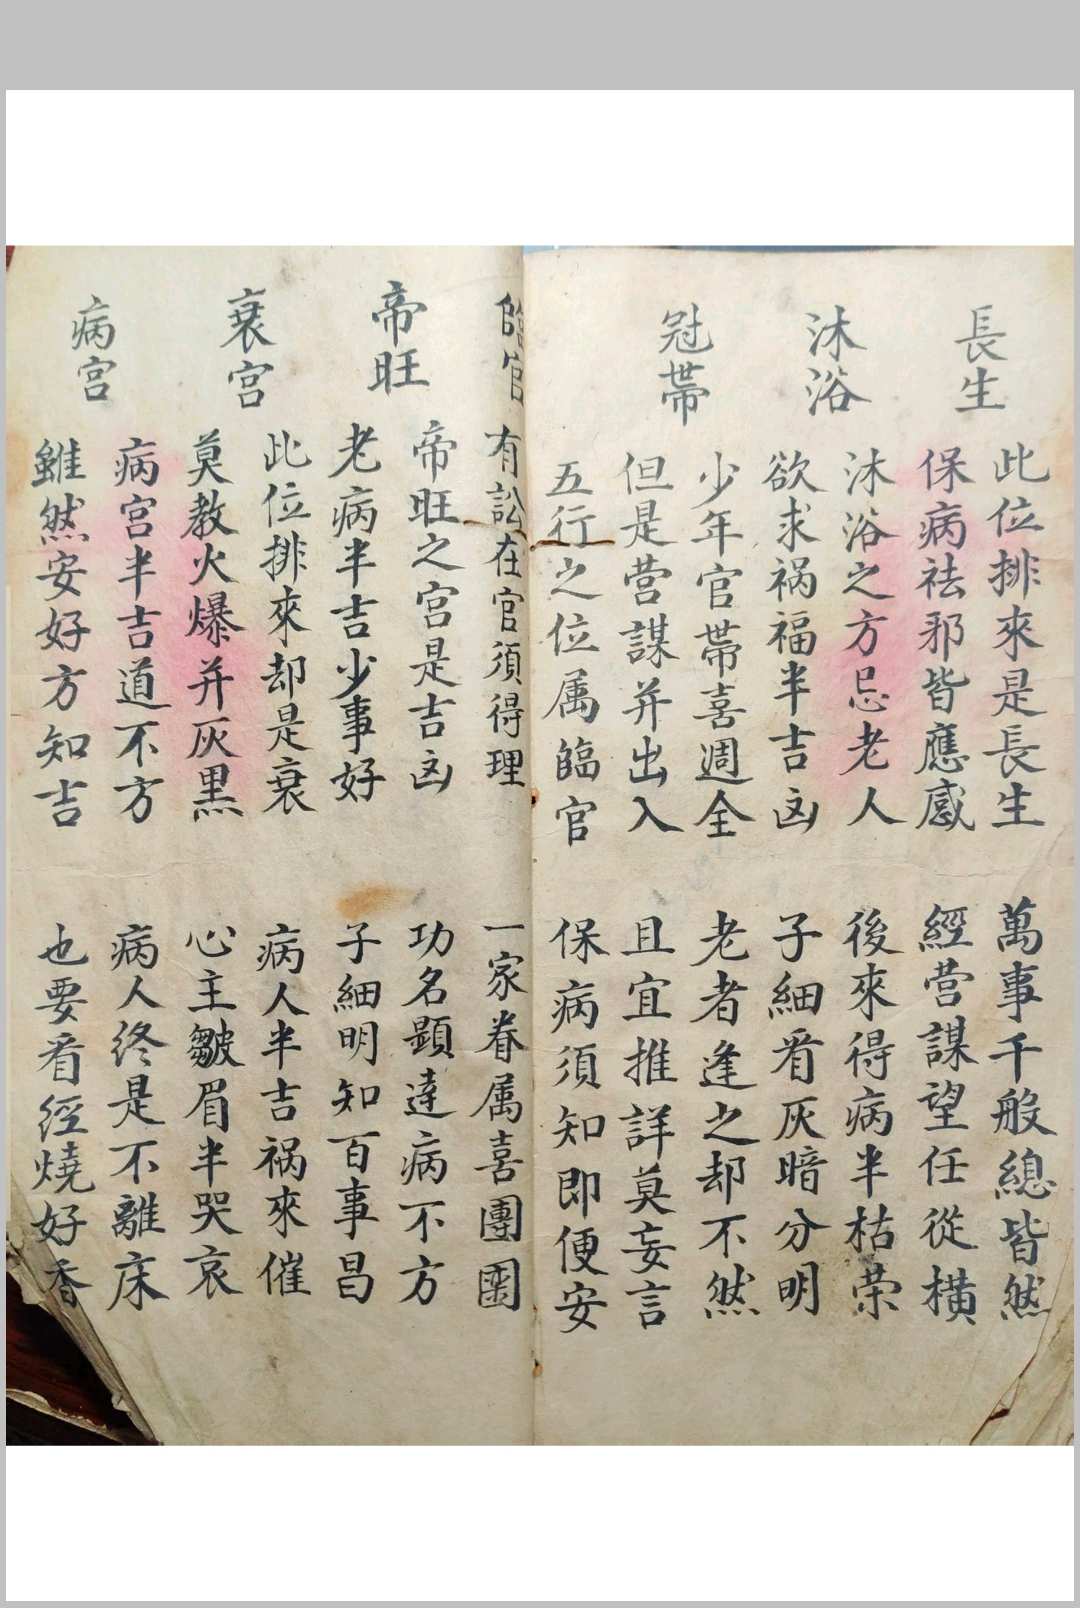 長生
此位排來是長生 萬事千般總皆然
保病祛邪皆應感 經营謀望任從橫
沐浴
沐浴之方忌老人 後來得病半枯荣
欲求祸福半吉凶 子細看灰暗分明
冠帶
少年官帶喜週全 老者逢之却不然
但是营謀并出入 且宜推詳莫妄言
五行之位属臨官 保病須知即便安
臨官
有訟在官須得理 一家眷属喜團圎
帝旺
帝旺之宫是吉凶 功名顕達病不方
老病半吉少事好 子細明知百事昌
衰宫
此位排來却是衰 病人半吉祸來催
莫教火爆并灰黑 心主皺眉半哭哀
病宫
病宫半吉道不方 病人终是不離床
雖然安好方知吉 也要看經燒好香